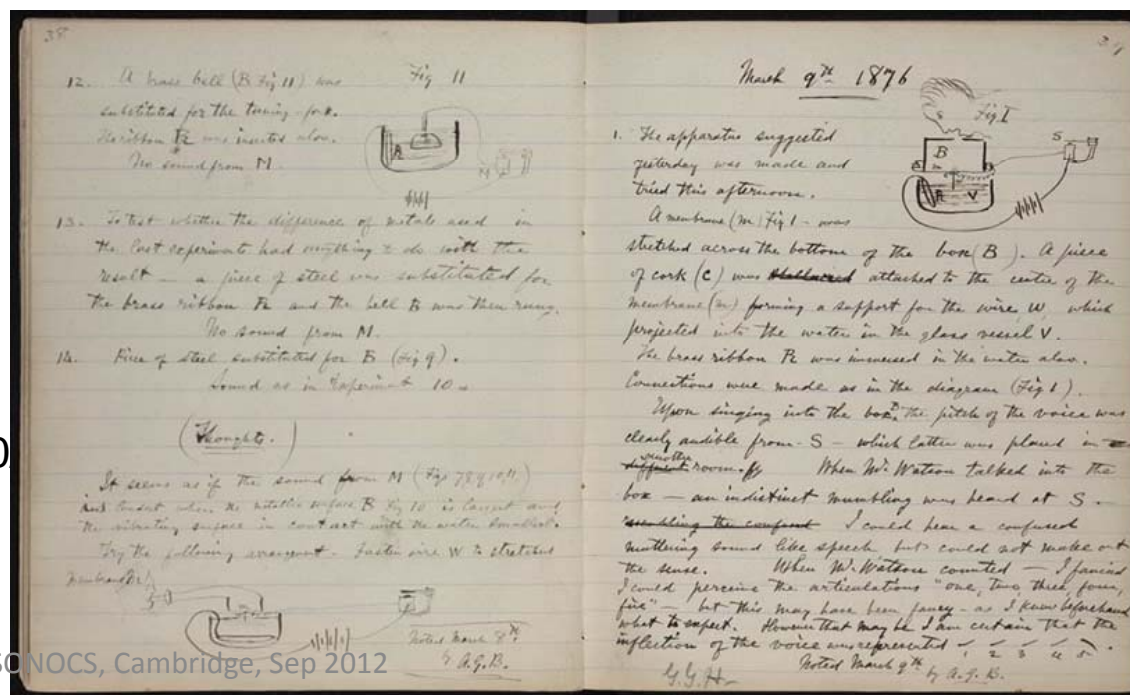 38
12. A brass bell (B Fig 11) was
substituted for the tuning-fork.
The ribbon R was inserted also.
No sound from M.
Fig 11
R
M
13. To test whether the difference of metals used in
the last experiments had anything to do with the
result — a piece of steel was substituted for
the brass ribbon R and the bell B was then rung.
No sound from M.
14. Piece of steel substituted for B (Fig 9).
Sound as in Experiment 10
(Thoughts.)
It seems as if the sound from M (Figs 7 8 9 10, 11)
loudest when the metallic surface B Fig 10 is largest and
the vibrating surface in contact with the water smallest.
Try the following arrangement – Fasten wire W to stretched
membrane
Noted March 8th
by A.G.B.
39
March 9th 1876
Fig. 1
S
B
m
R
V
1. The apparatus suggested
yesterday was made and
tried this afternoon.
A membrane (m) Fig 1 - was
stretched across the bottom of the box (B). A piece
of cork (C) was attached to the centre of the
membrane (m) forming a support for the wire W, which
projected into the water in the glass vessel V.
The brass ribbon R was immersed in the water also.
Connections were made as in the diagram (Fig 1).
Upon singing into the box, the pitch of the voice was
clearly audible from - S - which latter was placed in
another
different room. When Mr. Watson talked into the
box — an indistinct mumbling was heard at S.
resembling the confused I could hear a confused
muttering sound like speech but could not make out
the sense. When Mr. Watson counted — I fancied
I could perceive the articulations "one, two, three, four,
five" — but this may have been fancy - as I knew beforehand
what to expect. However that may be I am certain that the
inflection of the voice was represented 1 2 3 4 5.
Noted March 9th
by A.G.B.
G.G.H.
0
SONOCS, Cambridge, Sep 2012